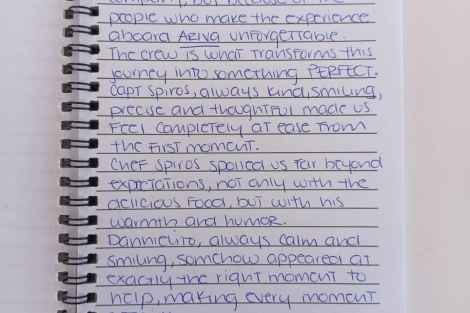 people who make the experience
aboard Ariva unforgettable.
The crew is what transforms this
journey into something PERFECT.
Capt Spiros, always kind, smiling,
precise and thoughtful made us
feel completely at ease from
the first moment.
Chef Spiros spoiled us far beyond
expectations, not only with the
delicious food, but with his
warmth and humor.
Dannielito, always calm and
smiling, somehow appeared at
exactly the right moment to
help, making every moment